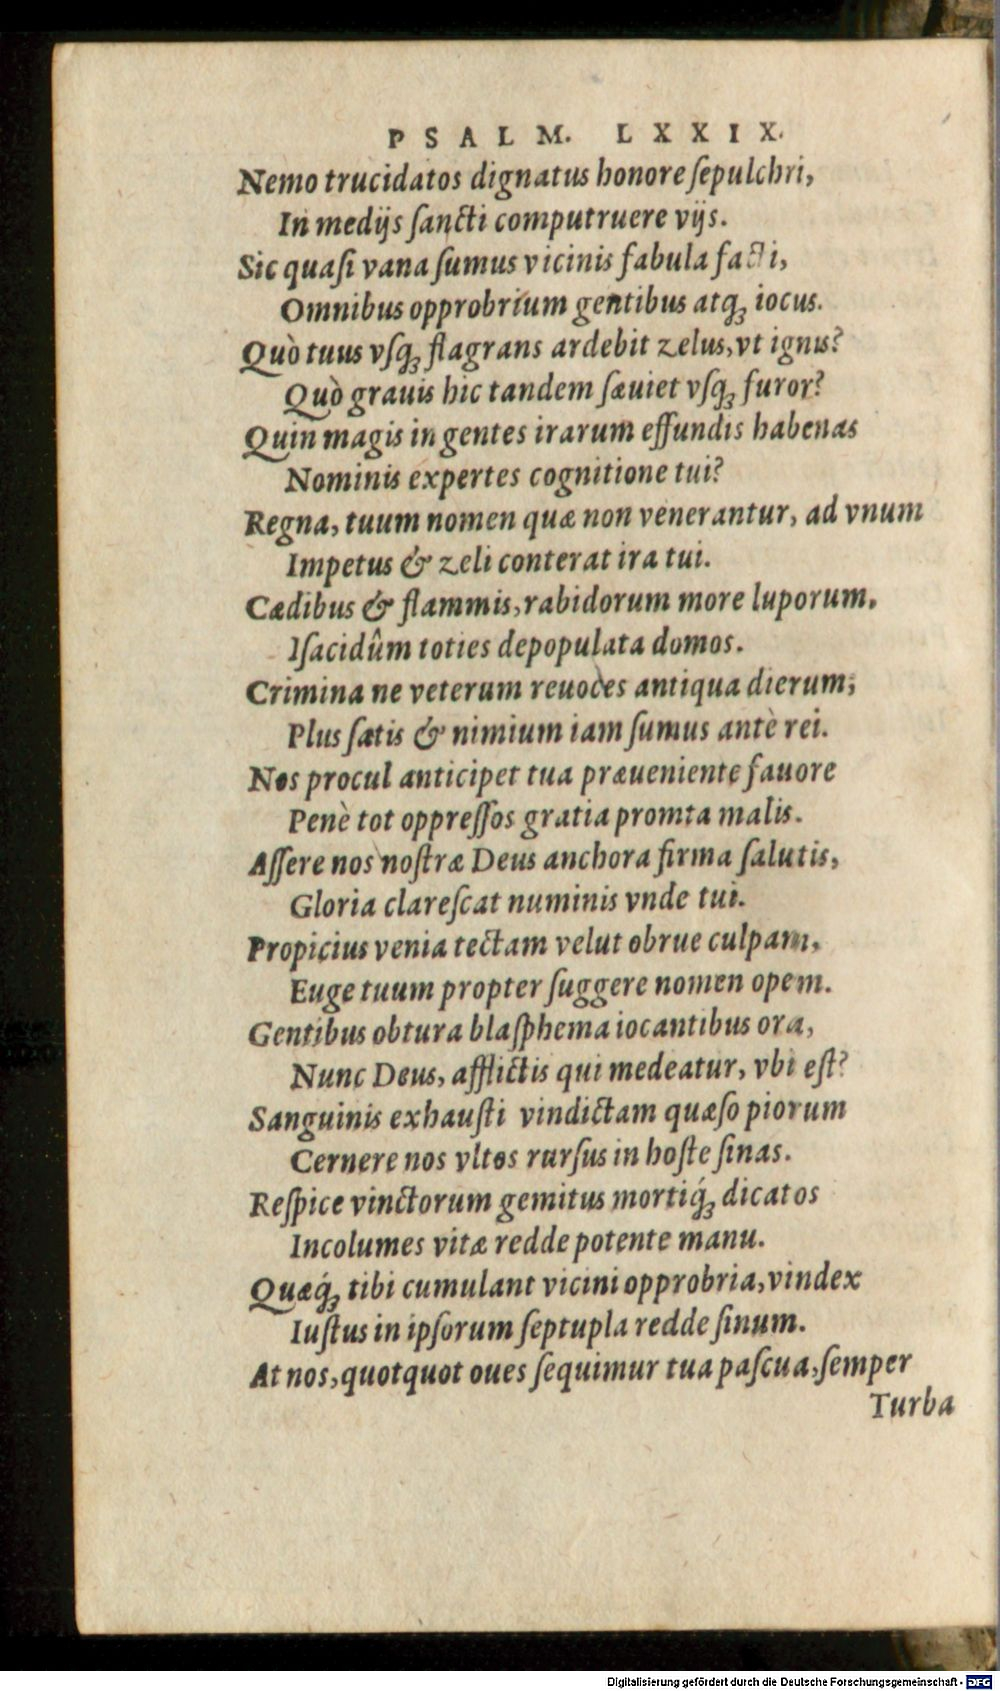 PSALM. LXXIX.
Nemo trucidatos dignatus honore ſepulchri,
In medijs ſancti computruere vijs.
Sic quaſi vana ſumus vicinis fabula facti,
Omnibus opprobrium gentibus atq́ꝫ iocus.
Quò tuus vſq́ꝫ flagrans ardebit zelus, vt ignis?
Quò grauis hic tandem ſæuiet vſq́ꝫ furor?
Quin magis in gentes irarum effundis habenas
Nominis expertes cognitione tui?
Regna, tuum nomen quæ non venerantur, ad vnum
Impetus & zeli conterat ira tui.
Cædibus & flammis, rabidorum more luporum,
Iſacidûm toties depopulata domos.
Crimina ne veterum reuoces antiqua dierum;
Plus ſatis & nimium iam ſumus antè rei.
Nos procul anticipet tua præueniente fauore
Penè tot oppreſſos gratia promta malis.
Aſſere nos noſtræ Deus anchora firma ſalutis,
Gloria clareſcat numinis vnde tui.
Propicius venia tectam velut obrue culpam,
Euge tuum propter ſuggere nomen opem.
Gentibus obtura blaſphema iocantibus ora,
Nunc Deus, afflictis qui medeatur, vbi eſt?
Sanguinis exhauſti vindictam quæſo piorum
Cernere nos vltos rurſus in hoſte ſinas.
Reſpice vinctorum gemitus mortiq́ꝫ dicatos
Incolumes vitæ redde potente manu.
Quæq́ꝫ tibi cumulant vicini opprobria, vindex
Iuſtus in ipſorum ſeptupla redde ſinum.
At nos, quotquot oues ſequimur tua paſcua, ſemper
Turba
Digitalisierung gefördert durch die Deutsche Forschungsgemeinschaft - DFG